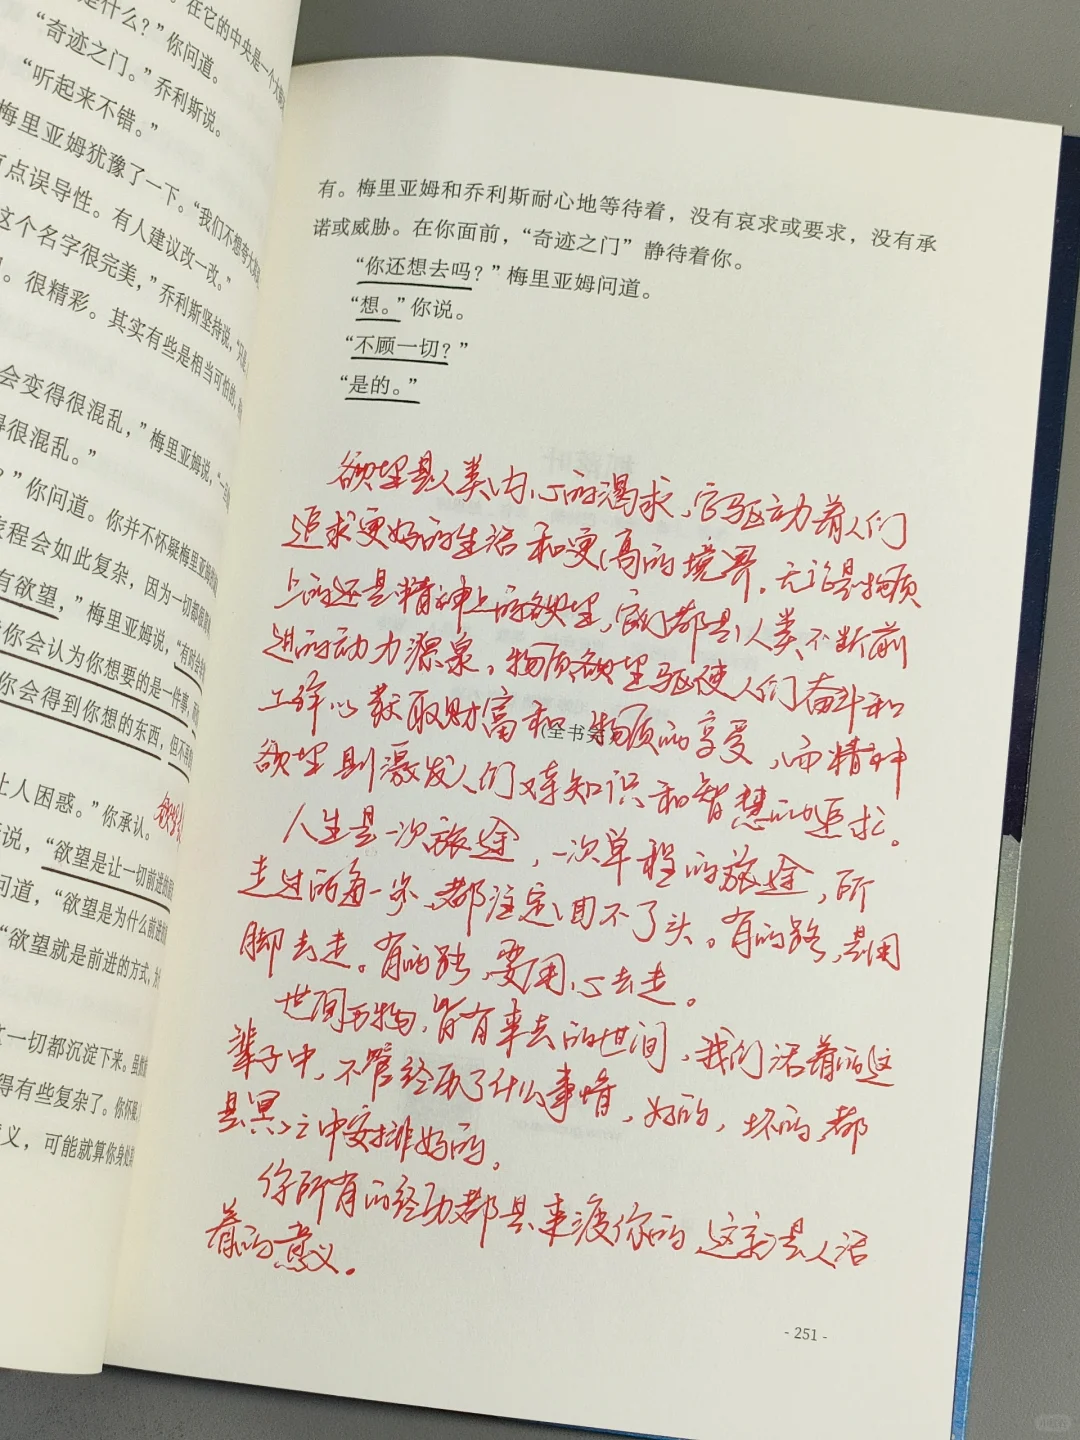 在它的中央是一个大
是什么？”你问道。
“奇迹之门。”乔利斯说。
“听起来不错。”
梅里亚姆犹豫了一下。“我们不想夸大
点误导性。有人建议改一改。”
这个名字很完美，”乔利斯坚持说，“只是
。很精彩。其实有些是相当可怕的，
会变得很混乱，”梅里亚姆说，“一
得很混乱。”
？”你问道。你并不怀疑梅里亚姆
旅程会如此复杂，因为一切都
有欲望，”梅里亚姆说，“有时会
你会认为你想要的是一件事，
你会得到你想的东西，但不
让人困惑。”你承认。
说，“欲望是让一切前进的
问道，“欲望是为什么前进
“欲望就是前进的方式，
一切都沉淀下来。虽然
得有些复杂了。你怀疑
义，可能就算你身处
有。梅里亚姆和乔利斯耐心地等待着，没有哀求或要求，没有承
诺或威胁。在你面前，“奇迹之门”静待着你。
“你还想去吗？”梅里亚姆问道。
“想。”你说。
“不顾一切？”
“是的。”
欲望是人类内心的渴求，它驱动着人们
追求更好的生活和更高的境界。无论是物质
上的还是精神上的欲望，它们都是人类不断前
进的动力源泉。物质欲望驱使人们奋斗和
工作以获取财富和物质的享受，而精神
(全书完)
欲望则激发人们对知识和智慧的追求。
人生是一次旅途，一次单程的旅途，所
走过的每一步，都注定回不了头。有的路，是用
脚去走。有的路，要用心去走。
世间万物，皆有来去的世间，我们活着的这
辈子中，不管经历了什么事情，好的，坏的，都
是冥冥之中安排好的。
你所有的经历都是来渡你的，这就是人活
着的意义。
- 251 -
小红书